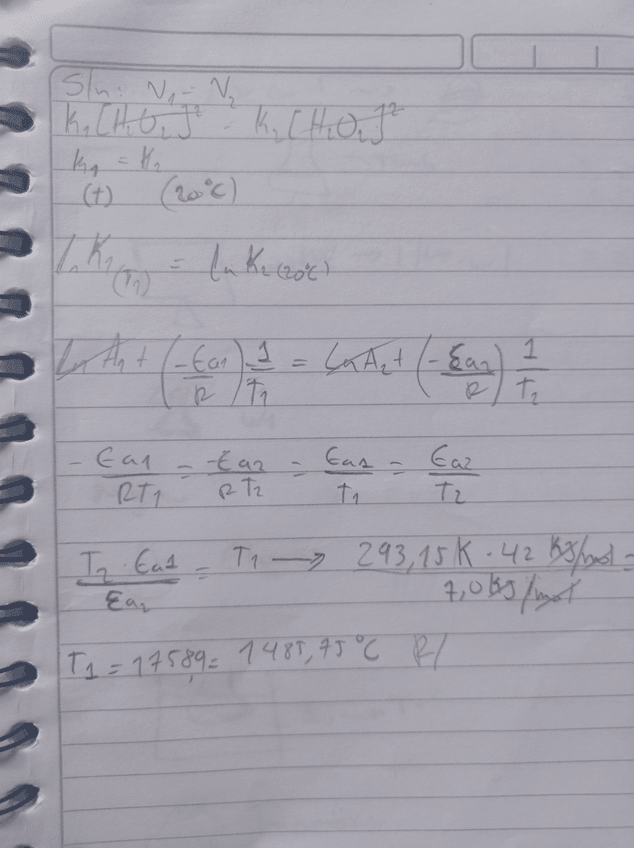 Sln: V₁ = V₂
K₁[H₂O₂]² = K₂[H₂O₂]²
K₁ = K₂
(t) (20°C)
ln K₁(T₁) = ln K₂(20°C)
ln A₁ + (-Ea1/R) 1/T₁ = ln A₂ + (-Ea2/R) 1/T₂
-Ea1/RT₁ = -Ea2/RT₂ = Ea1/T₁ = Ea2/T₂
T₂·Ea1/Ea2 = T₁ → 293,15K·42 KJ/mol / 7,0 KJ/mol =
T₁ = 1758,9 = 1485,75°C R/